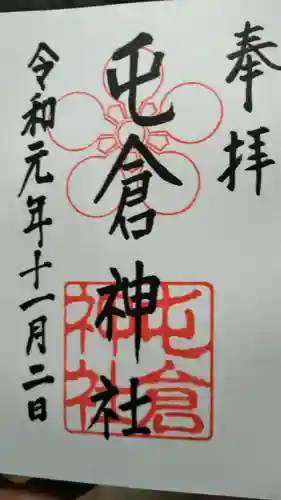 奉拝
屯倉神社
屯倉
神社
令和元年十一月二日